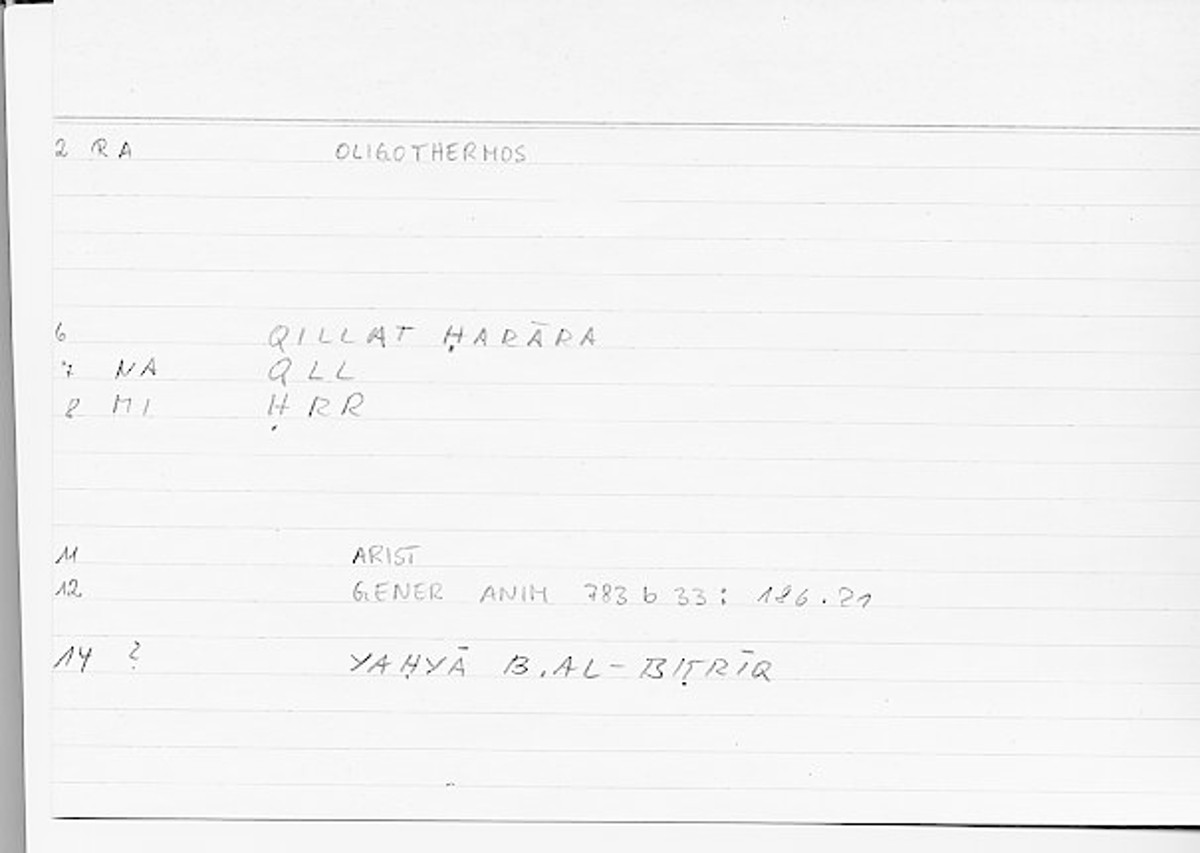 2 RA OLIGOTHERMOS
6 QILLAT ḤARĀRA
7 NA QLL
8 MI ḤRR
11 ARIST
12 GENER ANIM 783 b 33 : 186.21
14 ? YAḤYĀ B.AL-BIṬRĪQ